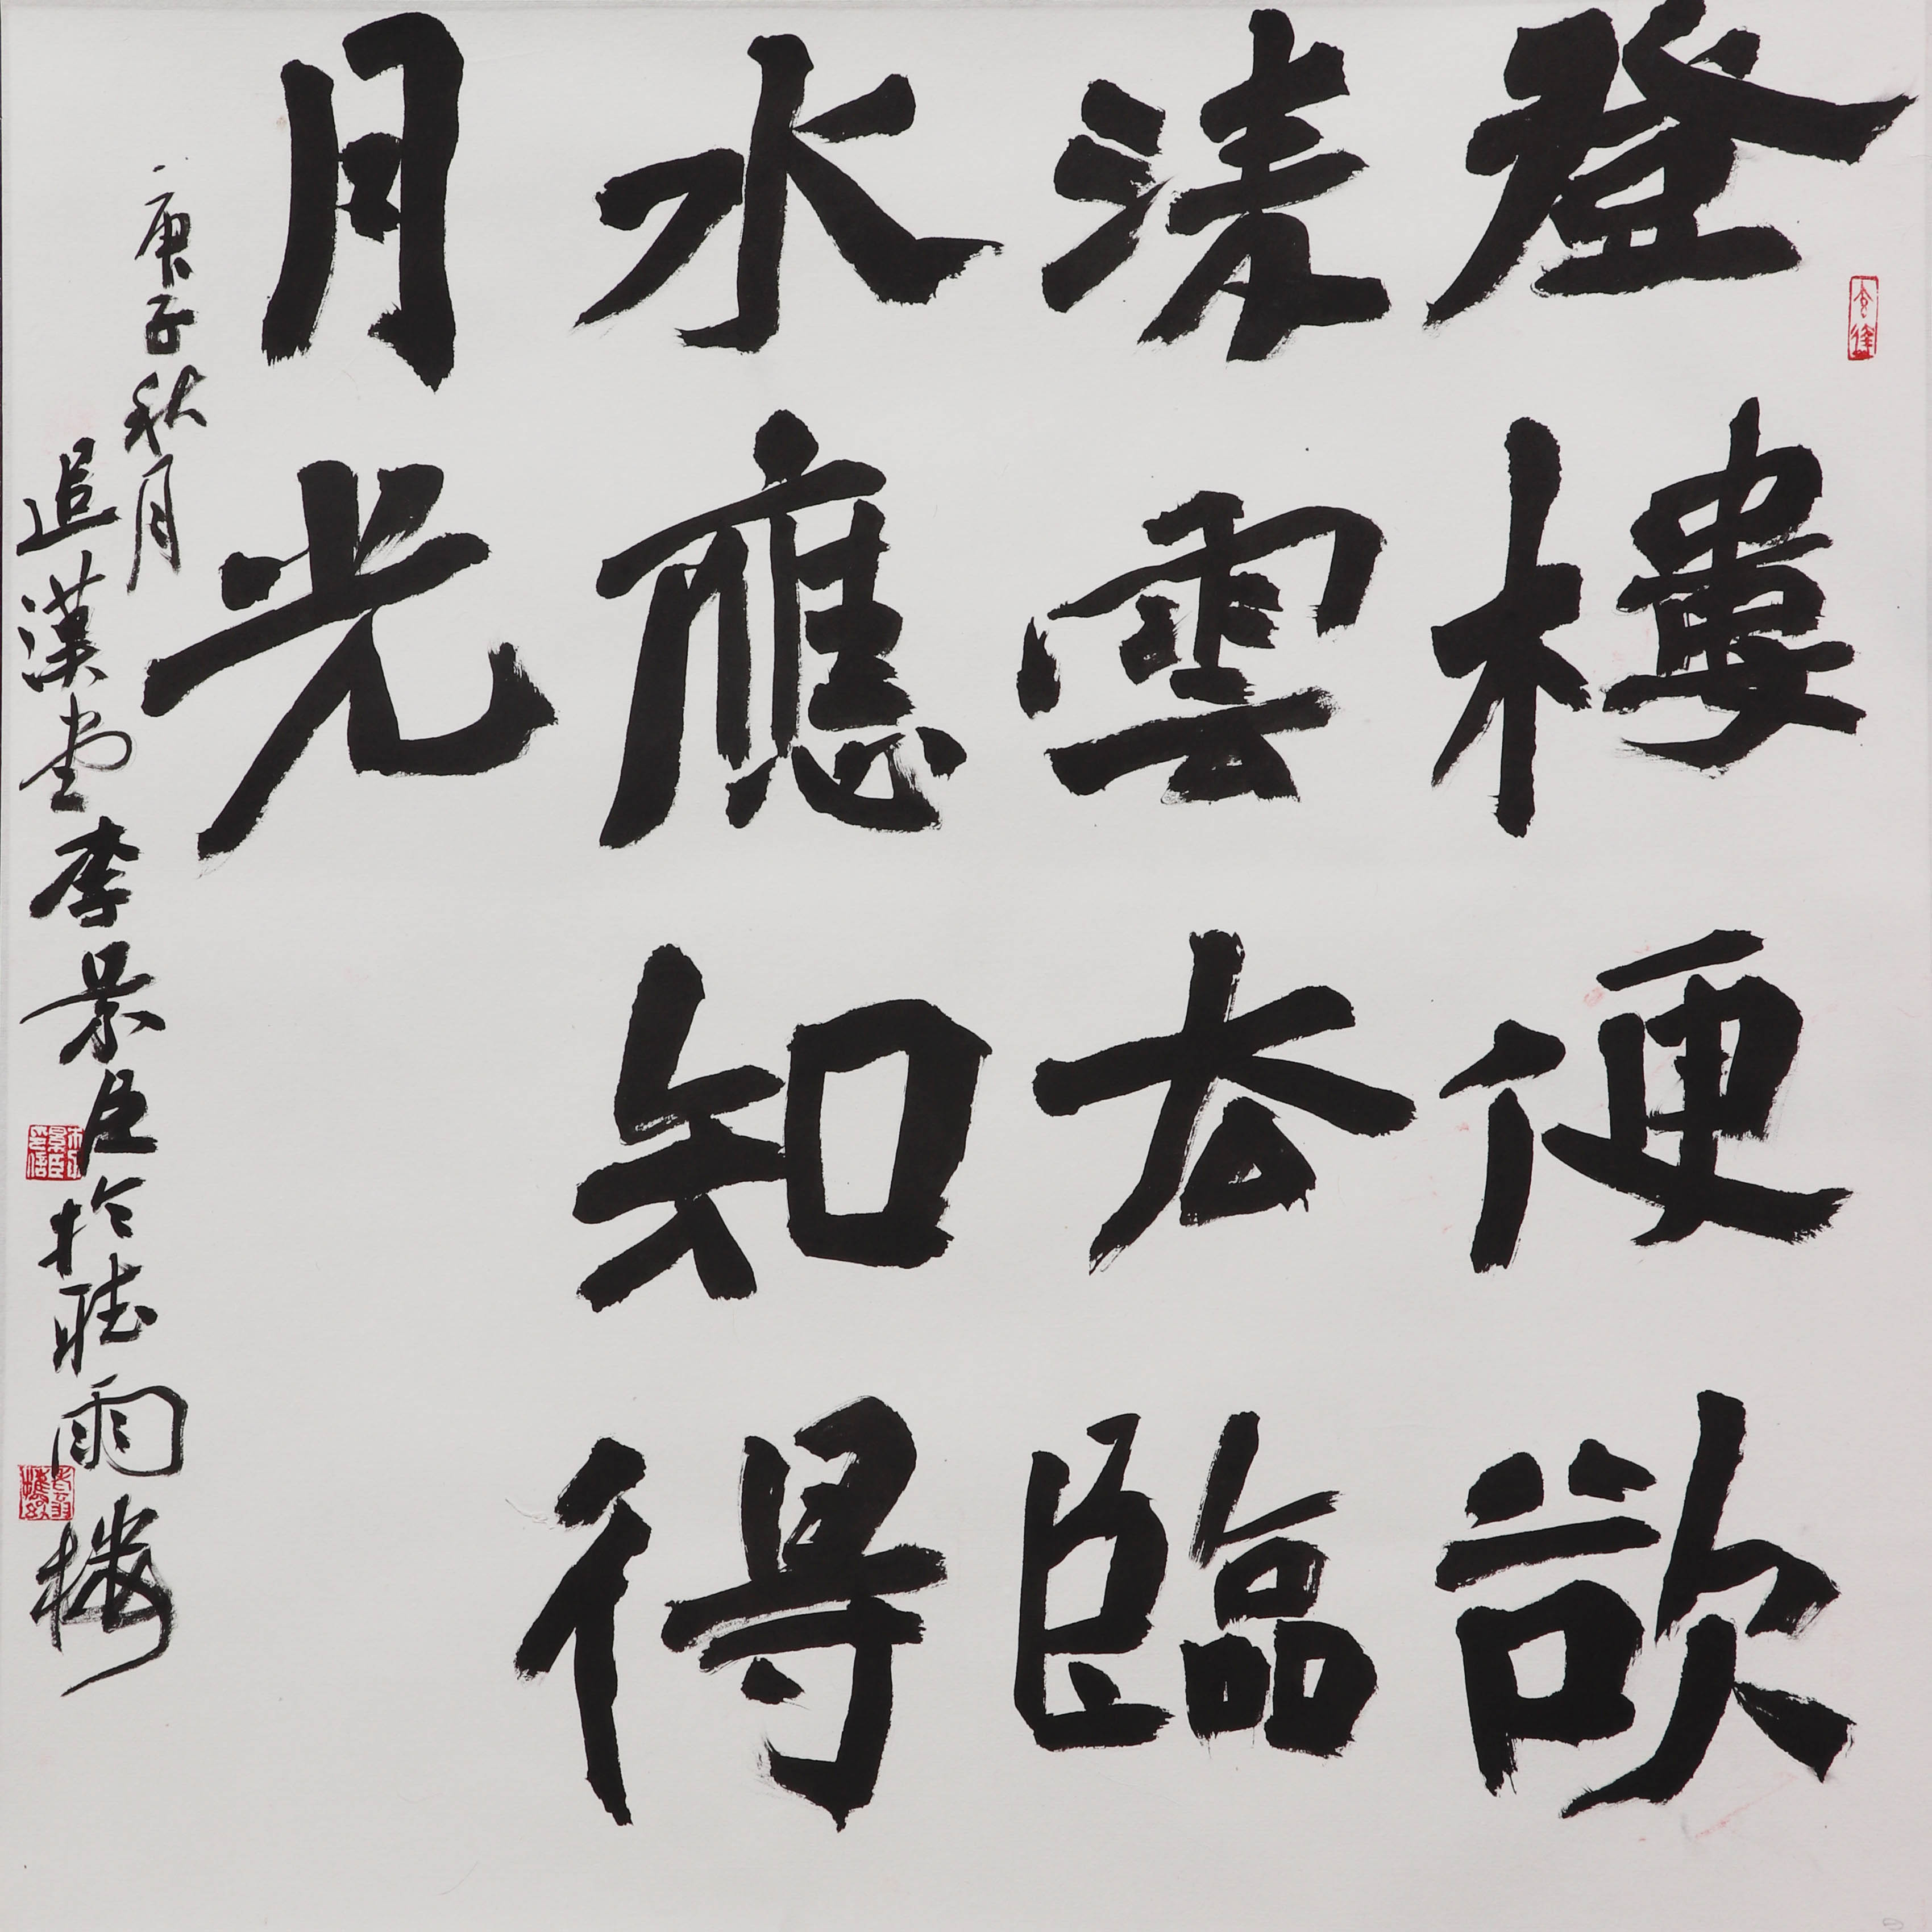 登樓便欲
淩雲去臨
水應知得
月光
庚子秋月
追漢堂李景臣於聽雨樓